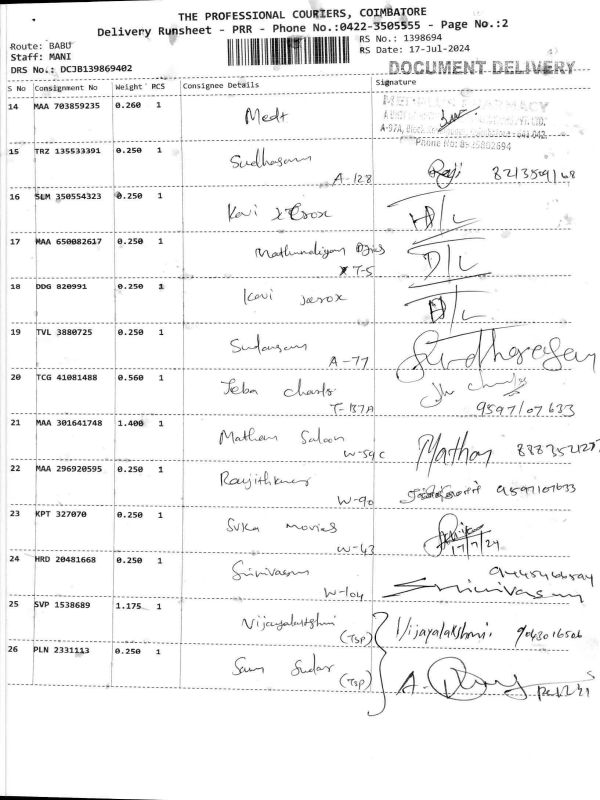 THE PROFESSIONAL COURIERS, COIMBATORE
Delivery Runsheet - PRR - Phone No.:0422-3505555 - Page No.:2
Route: BABU
RS No.: 1398694
Staff: MANI
RS Date: 17-Jul-2024
DRS No.: DCJB139869402
DOCUMENT DELIVERY
S No Consignment No Weight PCS Consignee Details Signature
14 MAA 703859235 0.260 1 Medt
15 TRZ 135533391 0.250 1 Sudhasan
A-128
16 SLM 350554323 0.250 1 Kavi xerox D/L
17 MAA 650082617 0.250 1 D/L
T-5
18 DDG 820991 0.250 1 Kavi xerox D/L
19 TVL 3880725 0.250 1
A-77
20 TCG 41081488 0.560 1 Jeba
T-137A 9597107633
21 MAA 301641748 1.400 1 Mathan Saloon Mathan
W-59C
22 MAA 296920595 0.250 1 Ranjithkumar 9597107633
W-90
23 KPT 327070 0.250 1 Suka movies
W-43 17/7/24
24 HRD 20481668 0.250 1 Srinivasan Srinivasan
W-104
25 SVP 1538689 1.175 1 Vijayalakshmi Vijayalakshmi 9043016506
(TSP)
26 PLN 2331113 0.250 1 Sam Sudar
(TSP)